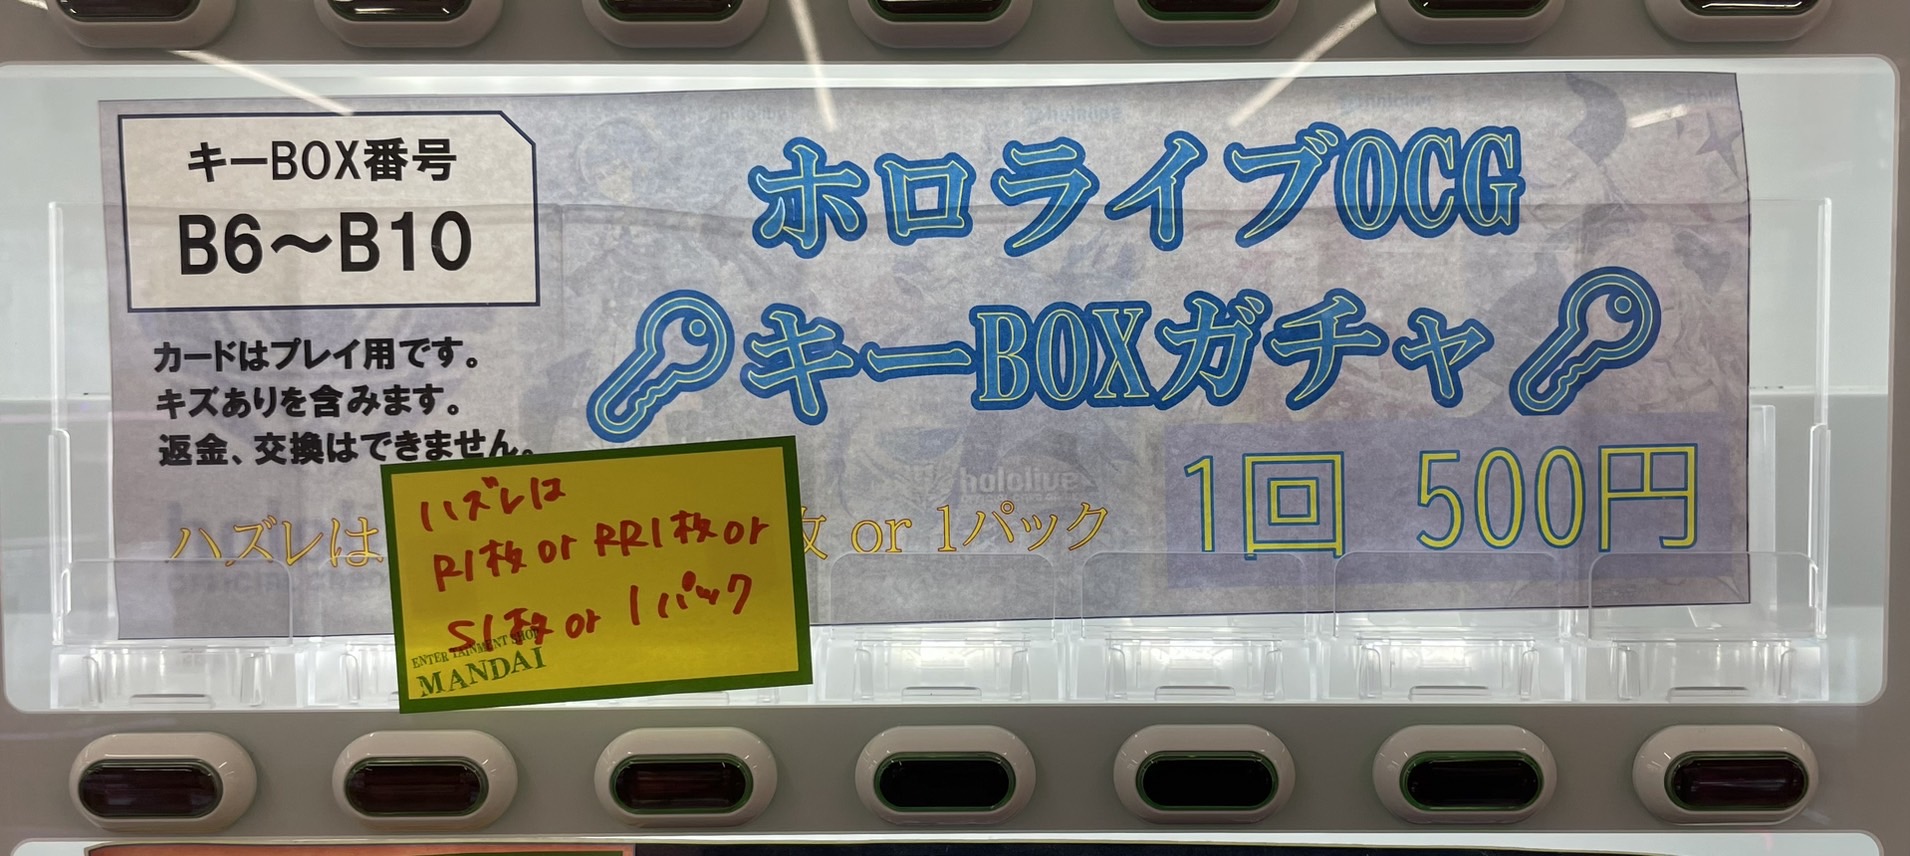 キーBOX番号
B6～B10
ホロライブOCG
キーBOXガチャ
カードはプレイ用です。
キズありを含みます。
返金、交換はできません。
1回 500円
ハズレは
枚 or 1パック
ハズレは
R1枚 or RR1枚 or
S1枚 or 1パック
ENTERTAINMENT SHOP
MANDAI
hololive